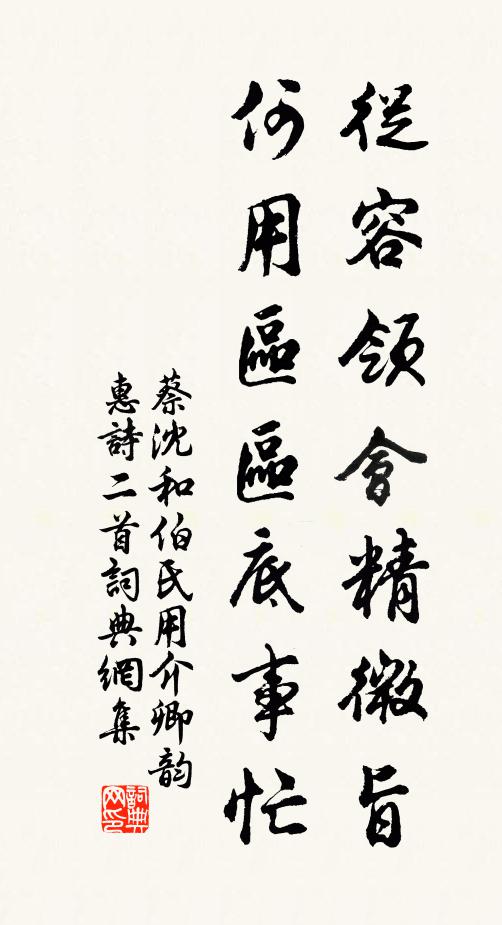 從容領會精微旨
何用區區底事忙
蔡沈和伯氏用介卿韵
惠詩二首詞典網集
詞典網印